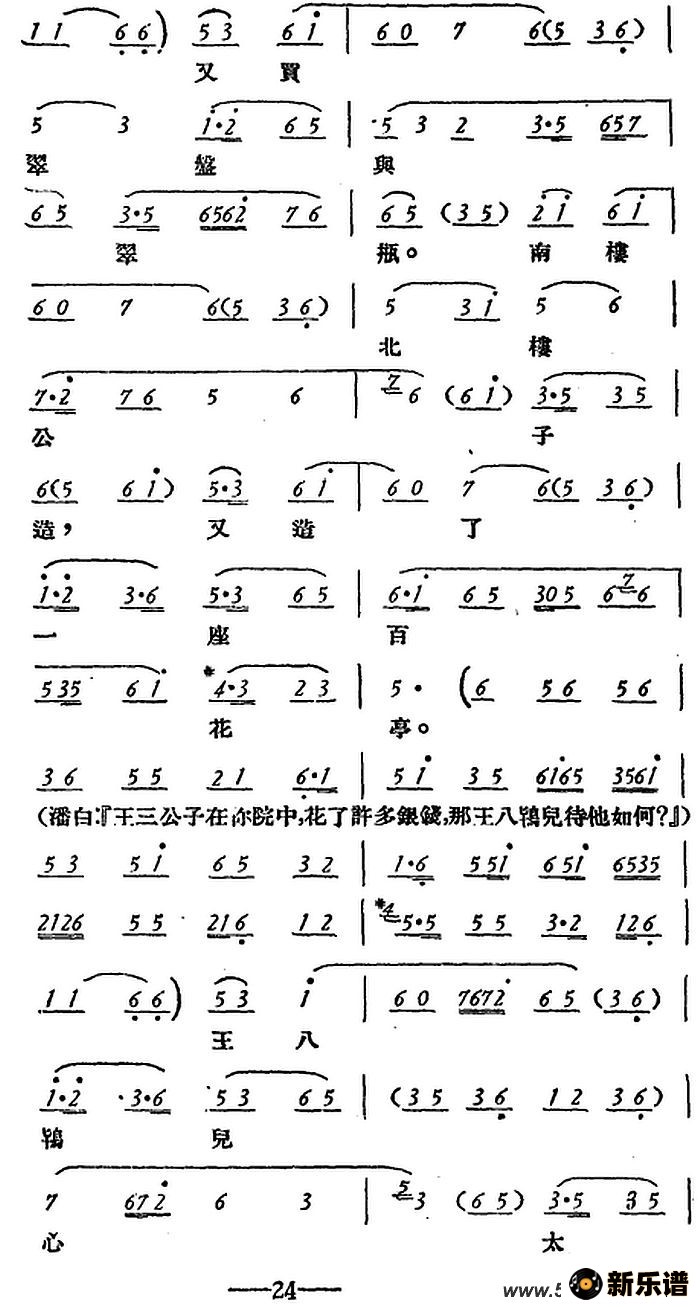 1 1 6 6) 5 3 6 i | 6 0 7 6(5 3 6) |
又 買
5 3 i·2 6 5 | 5 3 2 3·5 657
翠 盤 與
6 5 3·5 6562 7 6 | 6 5 (3 5) 2 i 6 i
翠 瓶。 南 樓
6 0 7 6(5 3 6) | 5 3 i 5 6 |
北 樓
7·2 7 6 5 6 | 7 6 (6 i) 3·5 3 5 |
公 子
6(5 6 i) 5·3 6 i | 6 0 7 6(5 3 6) |
造, 又 造 了
i·2 3·6 5·3 6 5 | 6·i 6 5 305 6 7 6
一 座 百
535 6 i #4·3 2 3 | 5· (6 5 6 5 6 |
花 亭。
3 6 5 5 2 1 6·1 | 5 i 3 5 6i65 356i |
(潘白:『王三公子在你院中,花了許多銀錢,那王八鴇兒待他如何?』)
5 3 5 i 6 5 3 2 | 1·6 55i 65i 6535
2126 5 5 216 1 2 | #4 5·5 5 5 3·2 126 |
1 1 6 6) 5 3 i | 6 0 7672 6 5 (3 6) |
王 八
i·2 3·6 5 3 6 5 | (3 5 3 6 1 2 3 6) |
鴇 兒
7 672 6 3 | 5 3 (6 5) 3·5 3 5 |
心 太
—24—
www.5
新乐谱